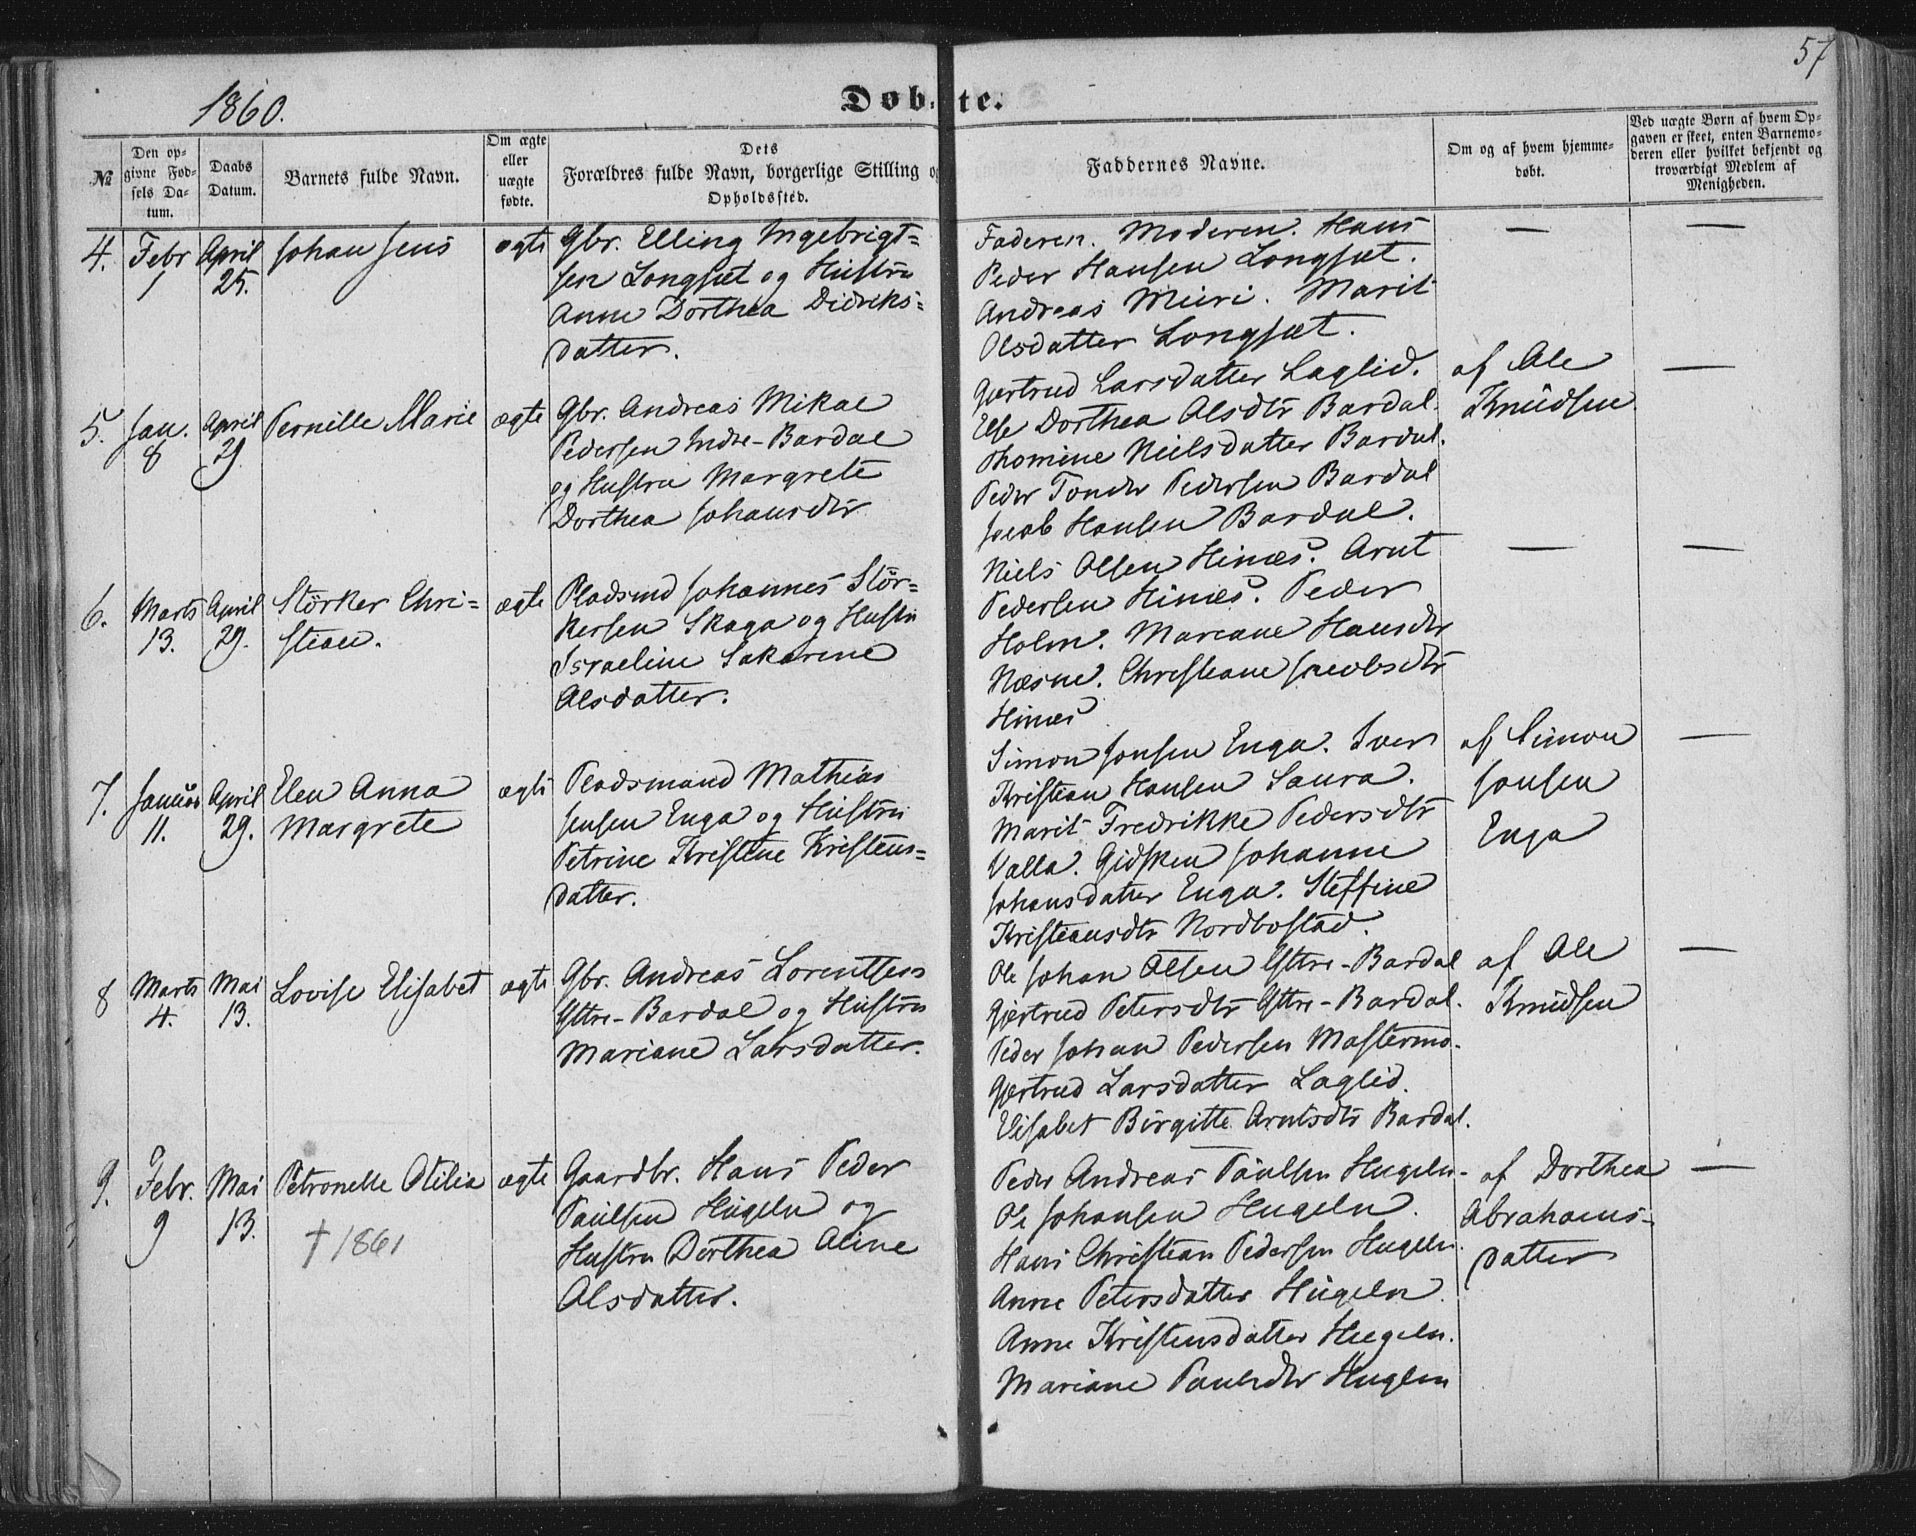 57
1860.
Døbte.
№
Den opgivne Fødsels Datum.
Daabs Datum.
Barnets fulde Navn.
Om ægte eller uægte fødte.
Dets Forældres fulde Navn, borgerlige Stilling og Opholdssted.
Faddernes Navne.
Om og af hvem hjemmedøbt.
Ved uægte Børn af hvem Opgaven er skeet, enten Barnemoderen eller hvilket bekjendt og troværdigt Medlem af Menigheden.
4. Febr 1 April 25. Johan Jens ægte
Gbr. Elling Ingebrigt=
sen Longset og Hustru
Anne Dorthea Didriks=
datter.
Faderen. Moderen. Hans
Peder Hansen Longset.
Andreas Meieri. Marit
Olsdatter Longset.
— —
5. Jan. 8 April 29 Pernille Marie ægte
Gbr. Andreas Mikal
Pedersen Indre-Bardal
og Hustru Margrete
Dorthea Johansdtr
Gjertrud Larsdatter Laglid.
Else Dorthea Olsdtr Bardal.
Thomine Nielsdatter Bardal.
Peder Tonder Pedersen Bardal
Jacob Hansen Bardal.
af Ole
Knudsen
—
6. Marts 13. April 29. Störker Chri-
stian.
ægte
Pladsmd Johannes Stör=
kersen Skaga og Hustru
Israeline Sakarine
Olsdatter.
Niels Olsen Hinæs. Arnt
Pedersen Hinæs. Peder
Holm. Mareane Hansdtr
Næsne. Christiane Jacobsdtr
Hinæs
— —
7. Januar 11. April 29. Elen Anna
Margrete
ægte
Pladsmand Mathias
Jensen Enga og Hustru
Petrine Kristine Kristens=
datter.
Simon Jonsen Enga. Iver
Kristian Hansen Saura.
Marit Fredrikke Pedersdtr
Valla. Gidsken Johanne
Johansdatter Enga. Steffine
Kristiansdtr Nordbostad.
af Simon
Jonsen
Enga
—
8 Marts 4. Mai 13. Lovise Elisabet ægte
Gbr. Andreas Lorentsen
Yttre-Bardal og Hustru
Mariane Larsdatter.
Ole Johan Olsen Yttre-Bardal
Gjertrud Petersdtr Yttre-Bardal.
Peder Johan Pedersen Mastermo.
Gjertrud Larsdatter Laglid.
Elisabet Birgitte Arntsdtr Bardal.
af Ole
Knudsen
—
9. Febr. 9 Mai 13. Petronelle Otilia ægte
† 1861
Gaardbr. Hans Peder
Paulsen Hugeln og
Hustru Dorthea Oline
Olsdatter.
Peder Andreas Paulsen Hugeln.
Ole Johansen Hugeln.
Hans Christian Pedersen Hugeln.
Anne Petersdatter Hugeln.
Anne Kristensdatter Hugeln.
Mariane Paulsdtr Huglen
af Dorthea
Abrahams-
datter
—